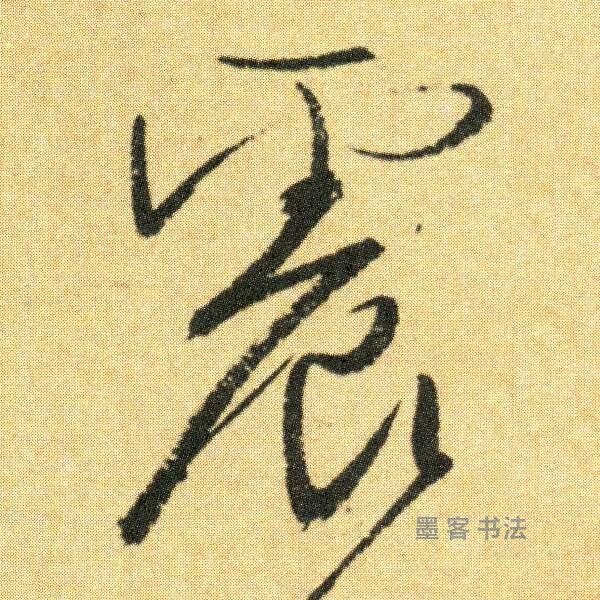 震
墨客书法